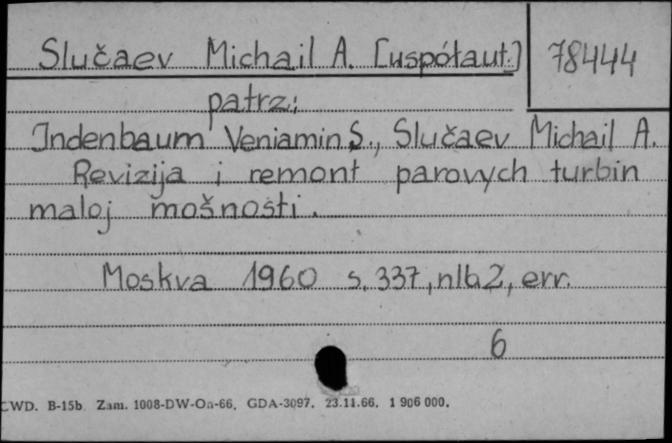 Slučaev Michail A. [współaut.] 78444
patrz:
Indenbaum Veniamin S., Slučaev Michail A.
Revizija i remont parovych turbin
maloj mošnosti.
Moskva 1960 s. 337, nlb 2, err.
6
CWD. B-15b Zam. 1008-DW-On-66. GDA-3097. 23.11.66. 1 906 000.